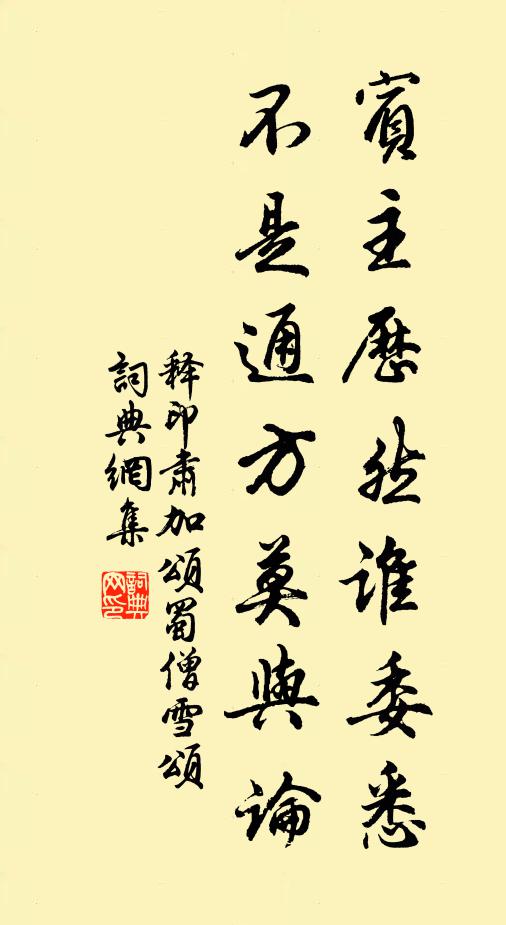 賓主歷然誰委悉
不是通方莫與論
释印肅加頌蜀僧雪頌
詞典網集
詞典網印